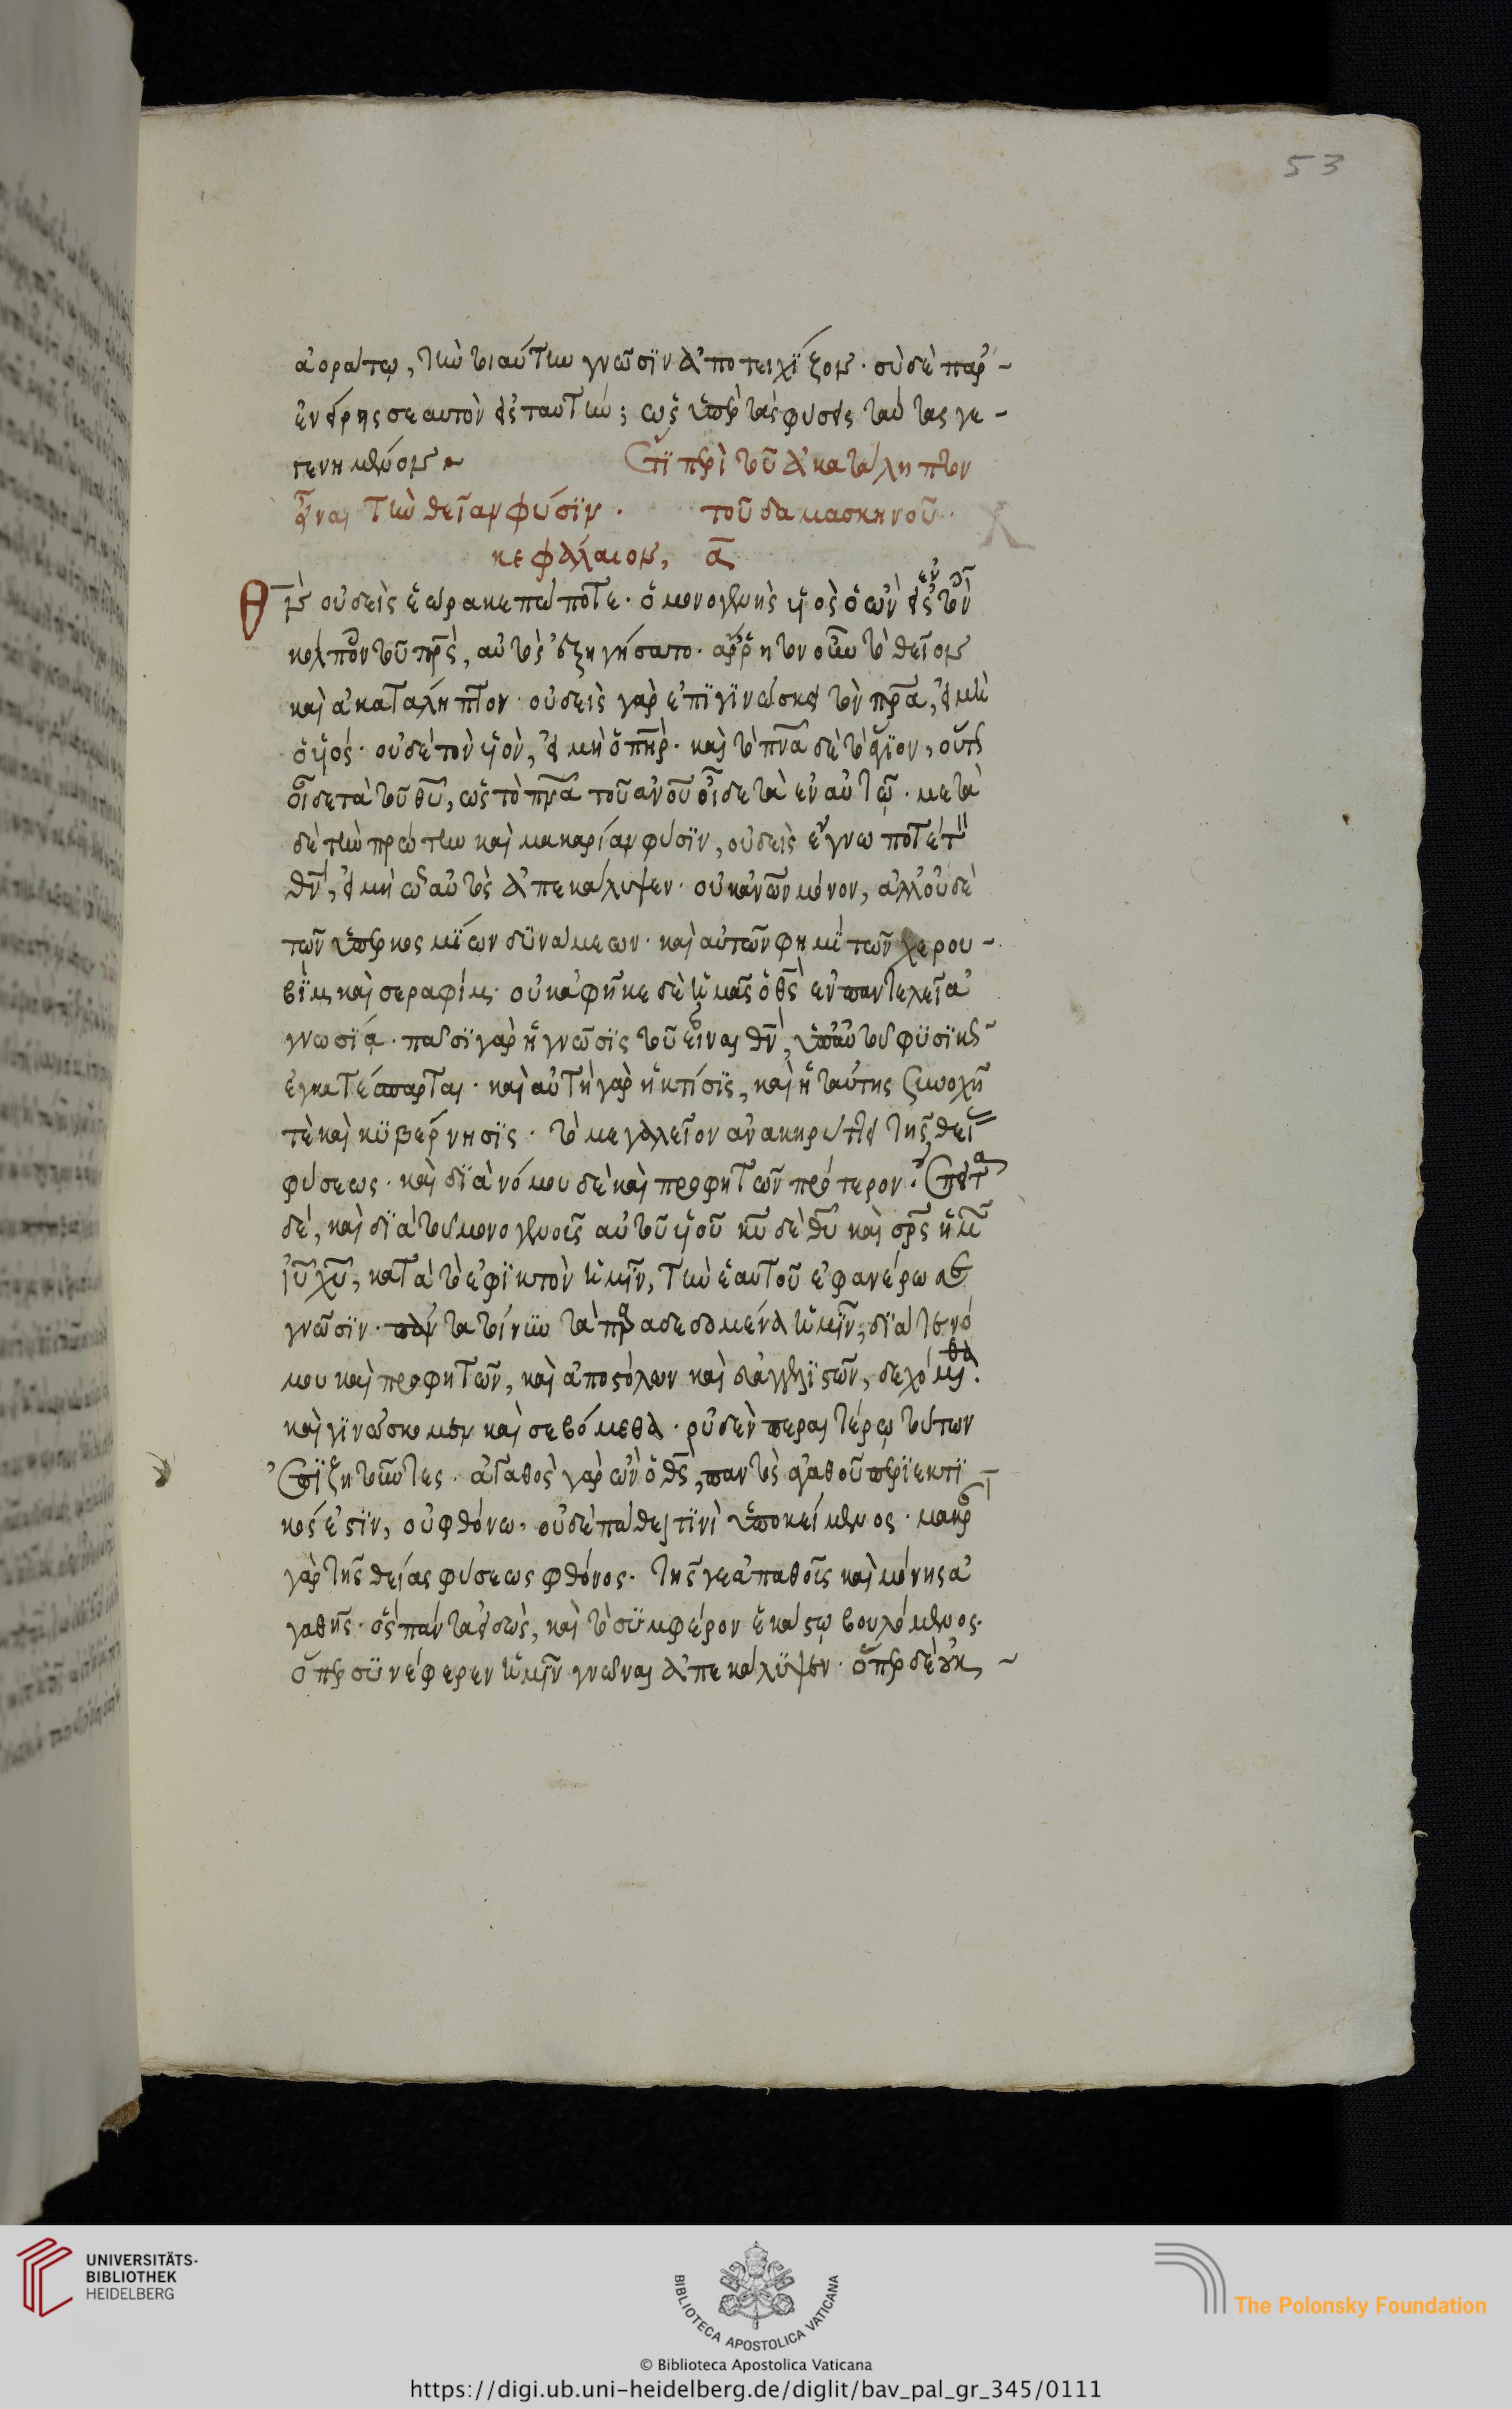 53
ἀοράτω, τὴν τοιαύτην γνῶσϊν ἀποτειχίζον. οὐδὲ παρ~
ἐνείρης σεαυτὸν εἰς ταυτην; ὡς ὑπὲρ τὰς φυσεις ταύτας γε~
γενημένον
Ὅτϊ περὶ τοῦ ἀκατάληπτον
εἶναι τὴν θεῖαν φύσϊν. τοῦ δαμασκηνοῦ.
κεφάλαιον, α̅
Θν̅ οὐδεὶς ἑώρακε πώποτε. ὁ μονογενὴς υἱὸς ὁ ὢν εἰς τὸν
κόλπον τοῦ πρς̅, αὐτὸς ἐξηγήσατο. ἄρρητον οὖν τὸ θεῖον
καὶ ἀκατάληπτον. οὐδεὶς γὰρ ἐπϊγϊνώσκει τὸν πρα̅, εἰ μὴ
ὁ υἱός. οὐδὲ τὸν υἱὸν, εἰ μὴ ὁ πηρ̅. καὶ τὸ πνα̅ δὲ τὸ ἅγϊον, οὕτως
οἶδε τὰ τοῦ θυ̅, ὡς τὸ πνα̅ τοῦ ανου̅ οἶδε τὰ ἐν αὐτῷ. μετὰ
δὲ τὴν πρώτην καὶ μακαρίαν φύσϊν, οὐδεὶς ἔγνω ποτὲ τ
θν̅, εἰ μὴ ᾧ αὐτὸς ἀπεκάλυψεν. οὐκ ἀνων̅ μόνον, ἀλλ' οὐδὲ
τῶν ὑπερκοσμϊων δϋνάμεων. καὶ αὐτῶν φημϊ τῶν χερου~
βϊμ καὶ σεραφίμ. οὐκ ἀφῆκε δὲ ἡμᾶς ὁ θς̅ ἐν παντελεῖα
γνωσία. πᾶσϊ γὰρ ἡ γνῶσϊς τοῦ εἶναι θν̅, ὑπ' αὐτοῦ φϋσϊκῶς
ἐγκατέσπαρται. καὶ αὐτὴ γὰρ ἡ κτίσϊς, καὶ ἡ ταύτης συνοχῆ
τὲ καὶ κϋβέρνησϊς. τὸ μεγαλεῖον ἀνακηρύττει τῆς θεί
φύσεως. καὶ δϊὰ νόμου δὲ καὶ προφητῶν πρότερον. ἔπειτα
δέ, καὶ δϊὰ τοῦ μονογενοῦς αὐτοῦ υἱοῦ κυ̅ δὲ θυ̅ καὶ σρς̅ ἡμ
ιυ̅ χυ̅, κατὰ τὸ ἐφϊκτὸν ἡμῖν, τὴν ἑαυτοῦ ἐφανέρωσε
γνῶσϊν. πάντα τοίνϋν τὰ παραδεδομένα ἡμῖν, δϊά τε νό
μου καὶ προφητῶν, καὶ ἀποστόλων καὶ εὐαγγελϊστῶν, δεχόμεθα.
καὶ γϊνώσκομεν καὶ σεβόμεθα. οὐδὲν περαιτέρω τούτων
ἐπϊζητοῦντες. ἀγαθὸς γὰρ ὢν ὁ θς̅, παντὸς ἀγαθοῦ περϊεκτϊ~
κός ἐστϊν, οὐ φθόνω. οὐδὲ πάθει τϊνὶ ὑποκείμενος. μακρ
γὰρ τῆς θείας φύσεως φθόνος. τῆς γε ἀπαθοῦς καὶ μόνης ἀ
γαθῆς. ὡς πάντα εἰδὼς, καὶ τὸ σϋμφέρον ἑκάστω βουλόμενος.
ὅπερ σϋνέφερεν ἡμῖν γνῶναι ἀπεκάλϋψεν. ὅπερ δὲ οὐκ ~
UNIVERSITÄTS-
BIBLIOTHEK
HEIDELBERG
BIBLIOTECA APOSTOLICA VATICANA
The Polonsky Foundation
© Biblioteca Apostolica Vaticana
https://digi.ub.uni-heidelberg.de/diglit/bav_pal_gr_345/0111